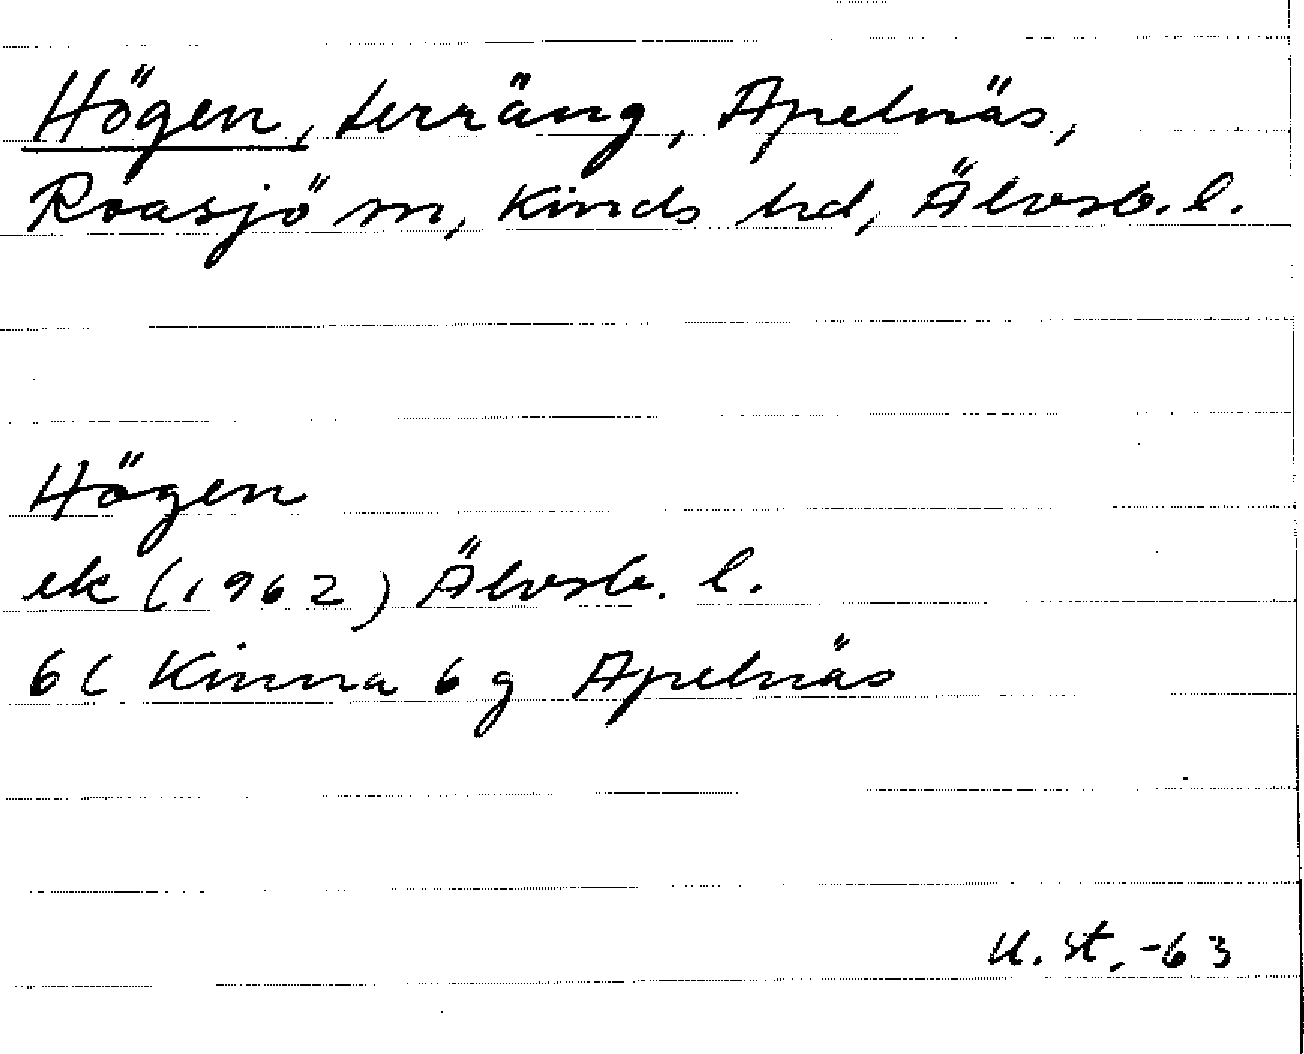 Högen, terräng, Apelnäs,
Roasjö sn, Kinds hd, Älvsb. l.
Högen
ek (1962) Älvsb. l.
6C Kinna 6 g Apelnäs
U. St. -63